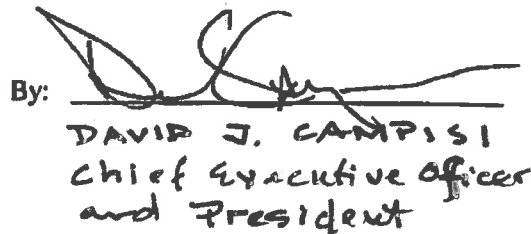 By:
DAVID J. CAMPISI
Chief Executive Officer
and President